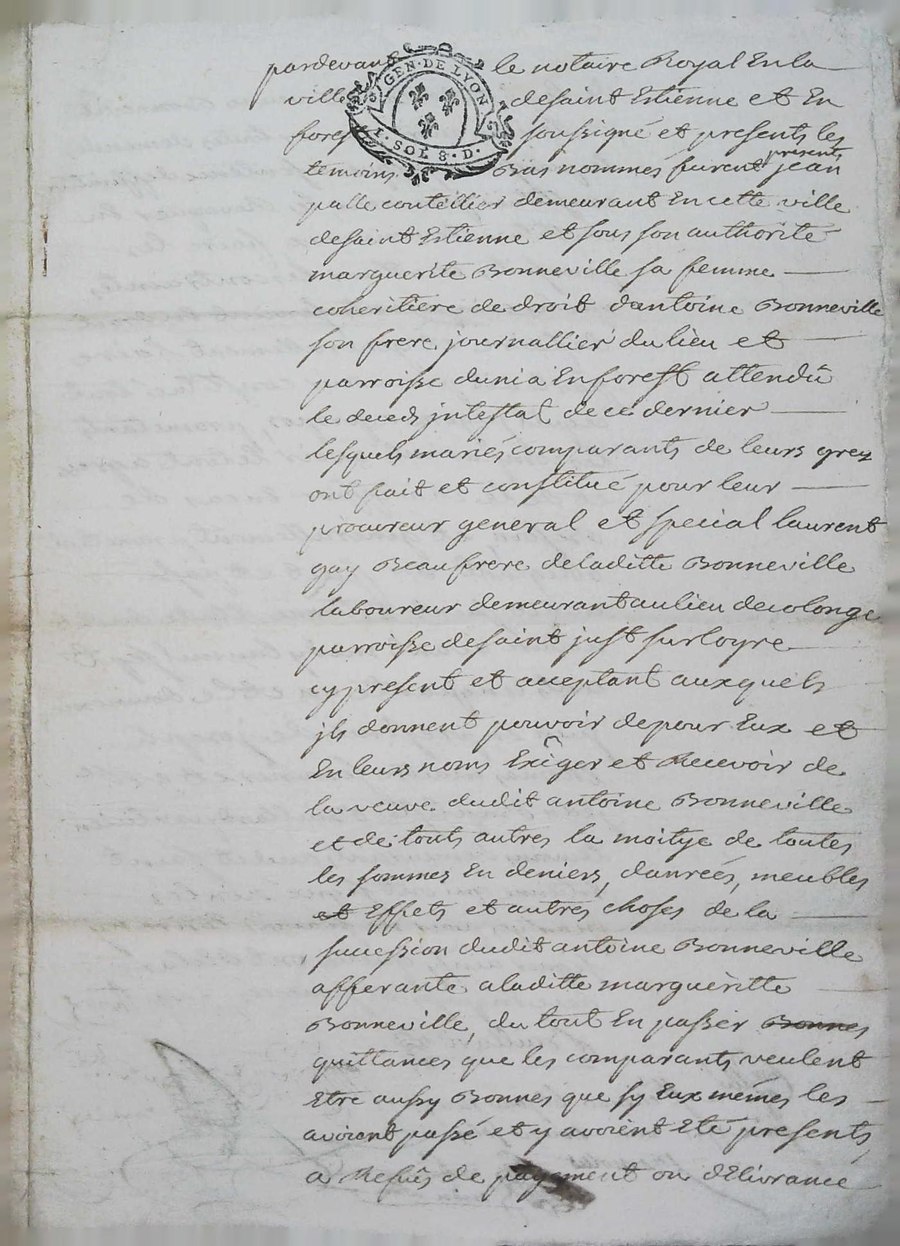 GEN·DE LYON
1·SOL 8·D·
pardevant le notaire Royal En la
ville de saint Estienne et En
forest soussigné et presents les
presents
temoins Bas nommés furent jean
palle coutellier demeurant En cette ville
de saint Estienne et sous son authorité
marguerite Bonneville sa femme
coheritiere de droit d'antoine Bonneville
son frere journallier du lieu et
parroisse dunia En forest attendû
le deceds jntestat de ce dernier
lesquels mariés comparants de leurs grez
ont fait et constitué pour leur
procureur general et special laurent
gay Beaufrere de laditte Bonneville
laboureur demeurant au lieu de colonge
parroisse de saint just sur loyre
cy present et acceptant auxquels
jls donnent pouvoir de pour Eux et
En leurs noms Exiger et Recevoir de
la veuve dudit antoine Bonneville
et de touts autres la moitye de toutes
les sommes En deniers, danreés, meubles
et Effets et autres choses de la
succession dudit antoine Bonneville
afferante a laditte marguèritte
Bonneville, du tout En passer Bonnes
quittances que les comparants veulent
Etre aussy Bonnes que sy Eux mémes les
avoient passé et y avoient Eté presents,
a Refûs de payement ou délivrance